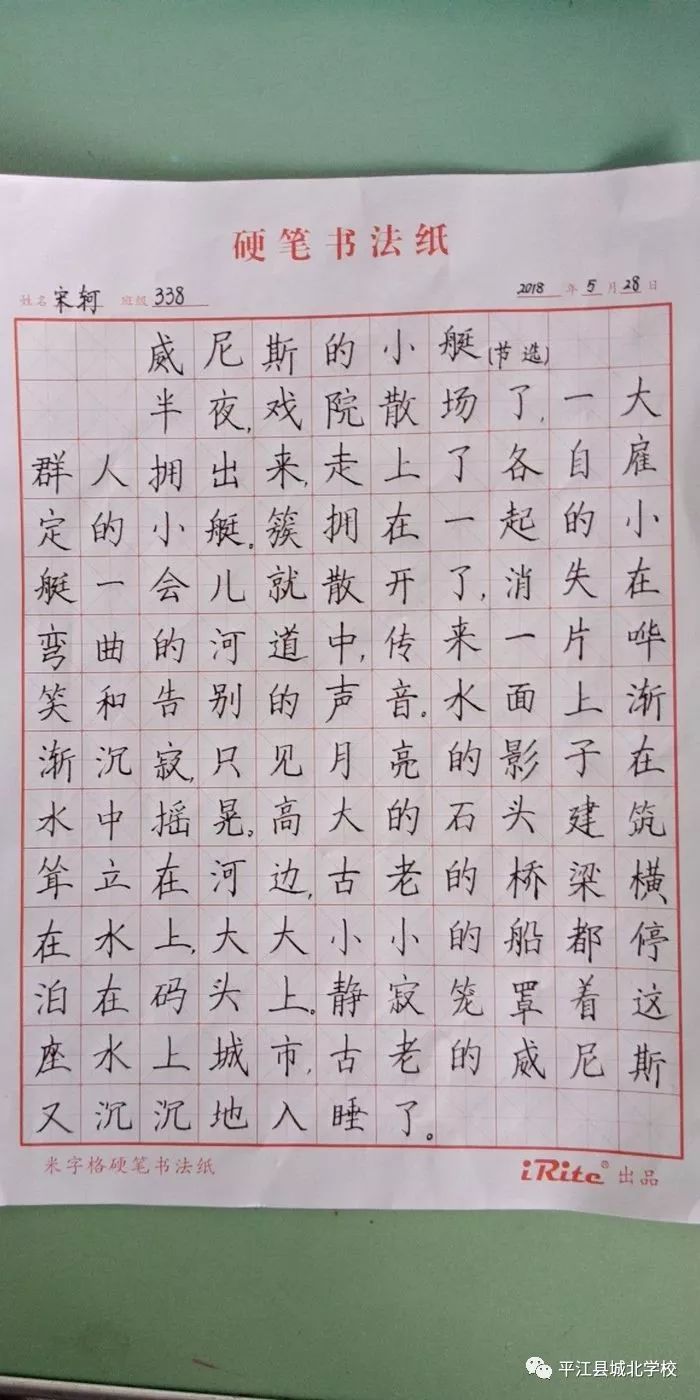 硬笔书法纸
姓名 宋轲 班级 338 2018 年 5 月 28 日
威尼斯的小艇(节选)
半夜,戏院散场了,一大
群人拥出来,走上了各自雇
定的小艇。簇拥在一起的小
艇一会儿就散开了,消失在
弯曲的河道中,传来一片哗
笑和告别的声音。水面上渐
渐沉寂,只见月亮的影子在
水中摇晃。高大的石头建筑
耸立在河边,古老的桥梁横
在水上,大大小小的船都停
泊在码头上。静寂笼罩着这
座水上城市,古老的威尼斯
又沉沉地入睡了。
米字格硬笔书法纸 iRite® 出品
平江县城北学校